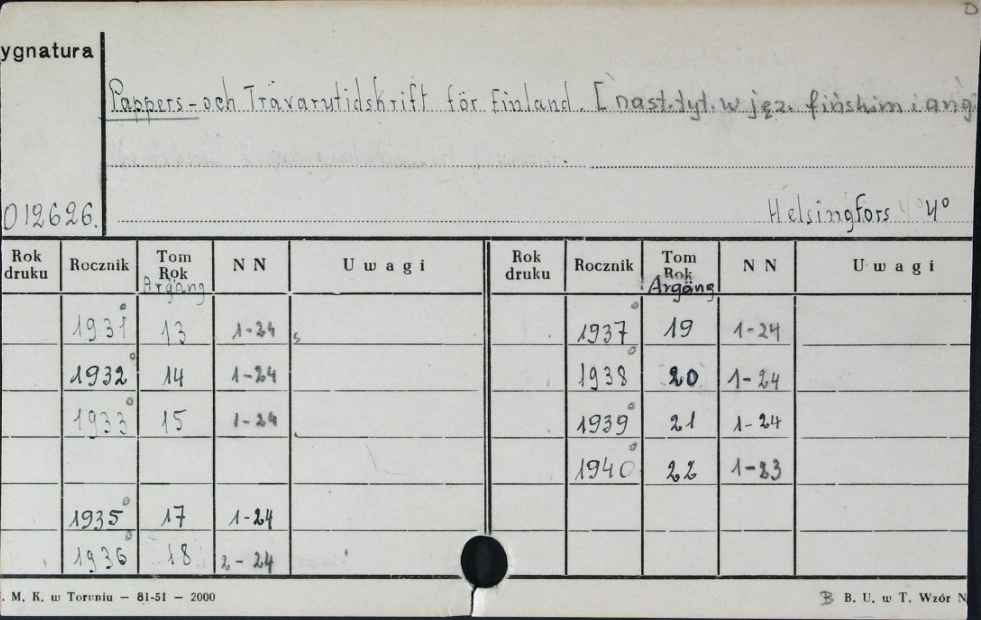 D
ygnatura
Pappers-och Trävarutidskrift för Finland. [nast. tyt. w jęz. fińskim i ang
012626.
Helsingfors 4°
Rok druku Rocznik Tom Rok Argäng NN Uwagi Rok druku Rocznik Tom Rok Argäng NN Uwagi
1931° 13 1-24 1937° 19 1-24
1932° 14 1-24 1938° 20 1-24
1933° 15 1-24 1939° 21 1-24
1940° 22 1-23
1935° 17 1-24
1936° 18 2-24
. M. K. w Toruniu — 81-51 — 2000 B B. U. w T. Wzór N